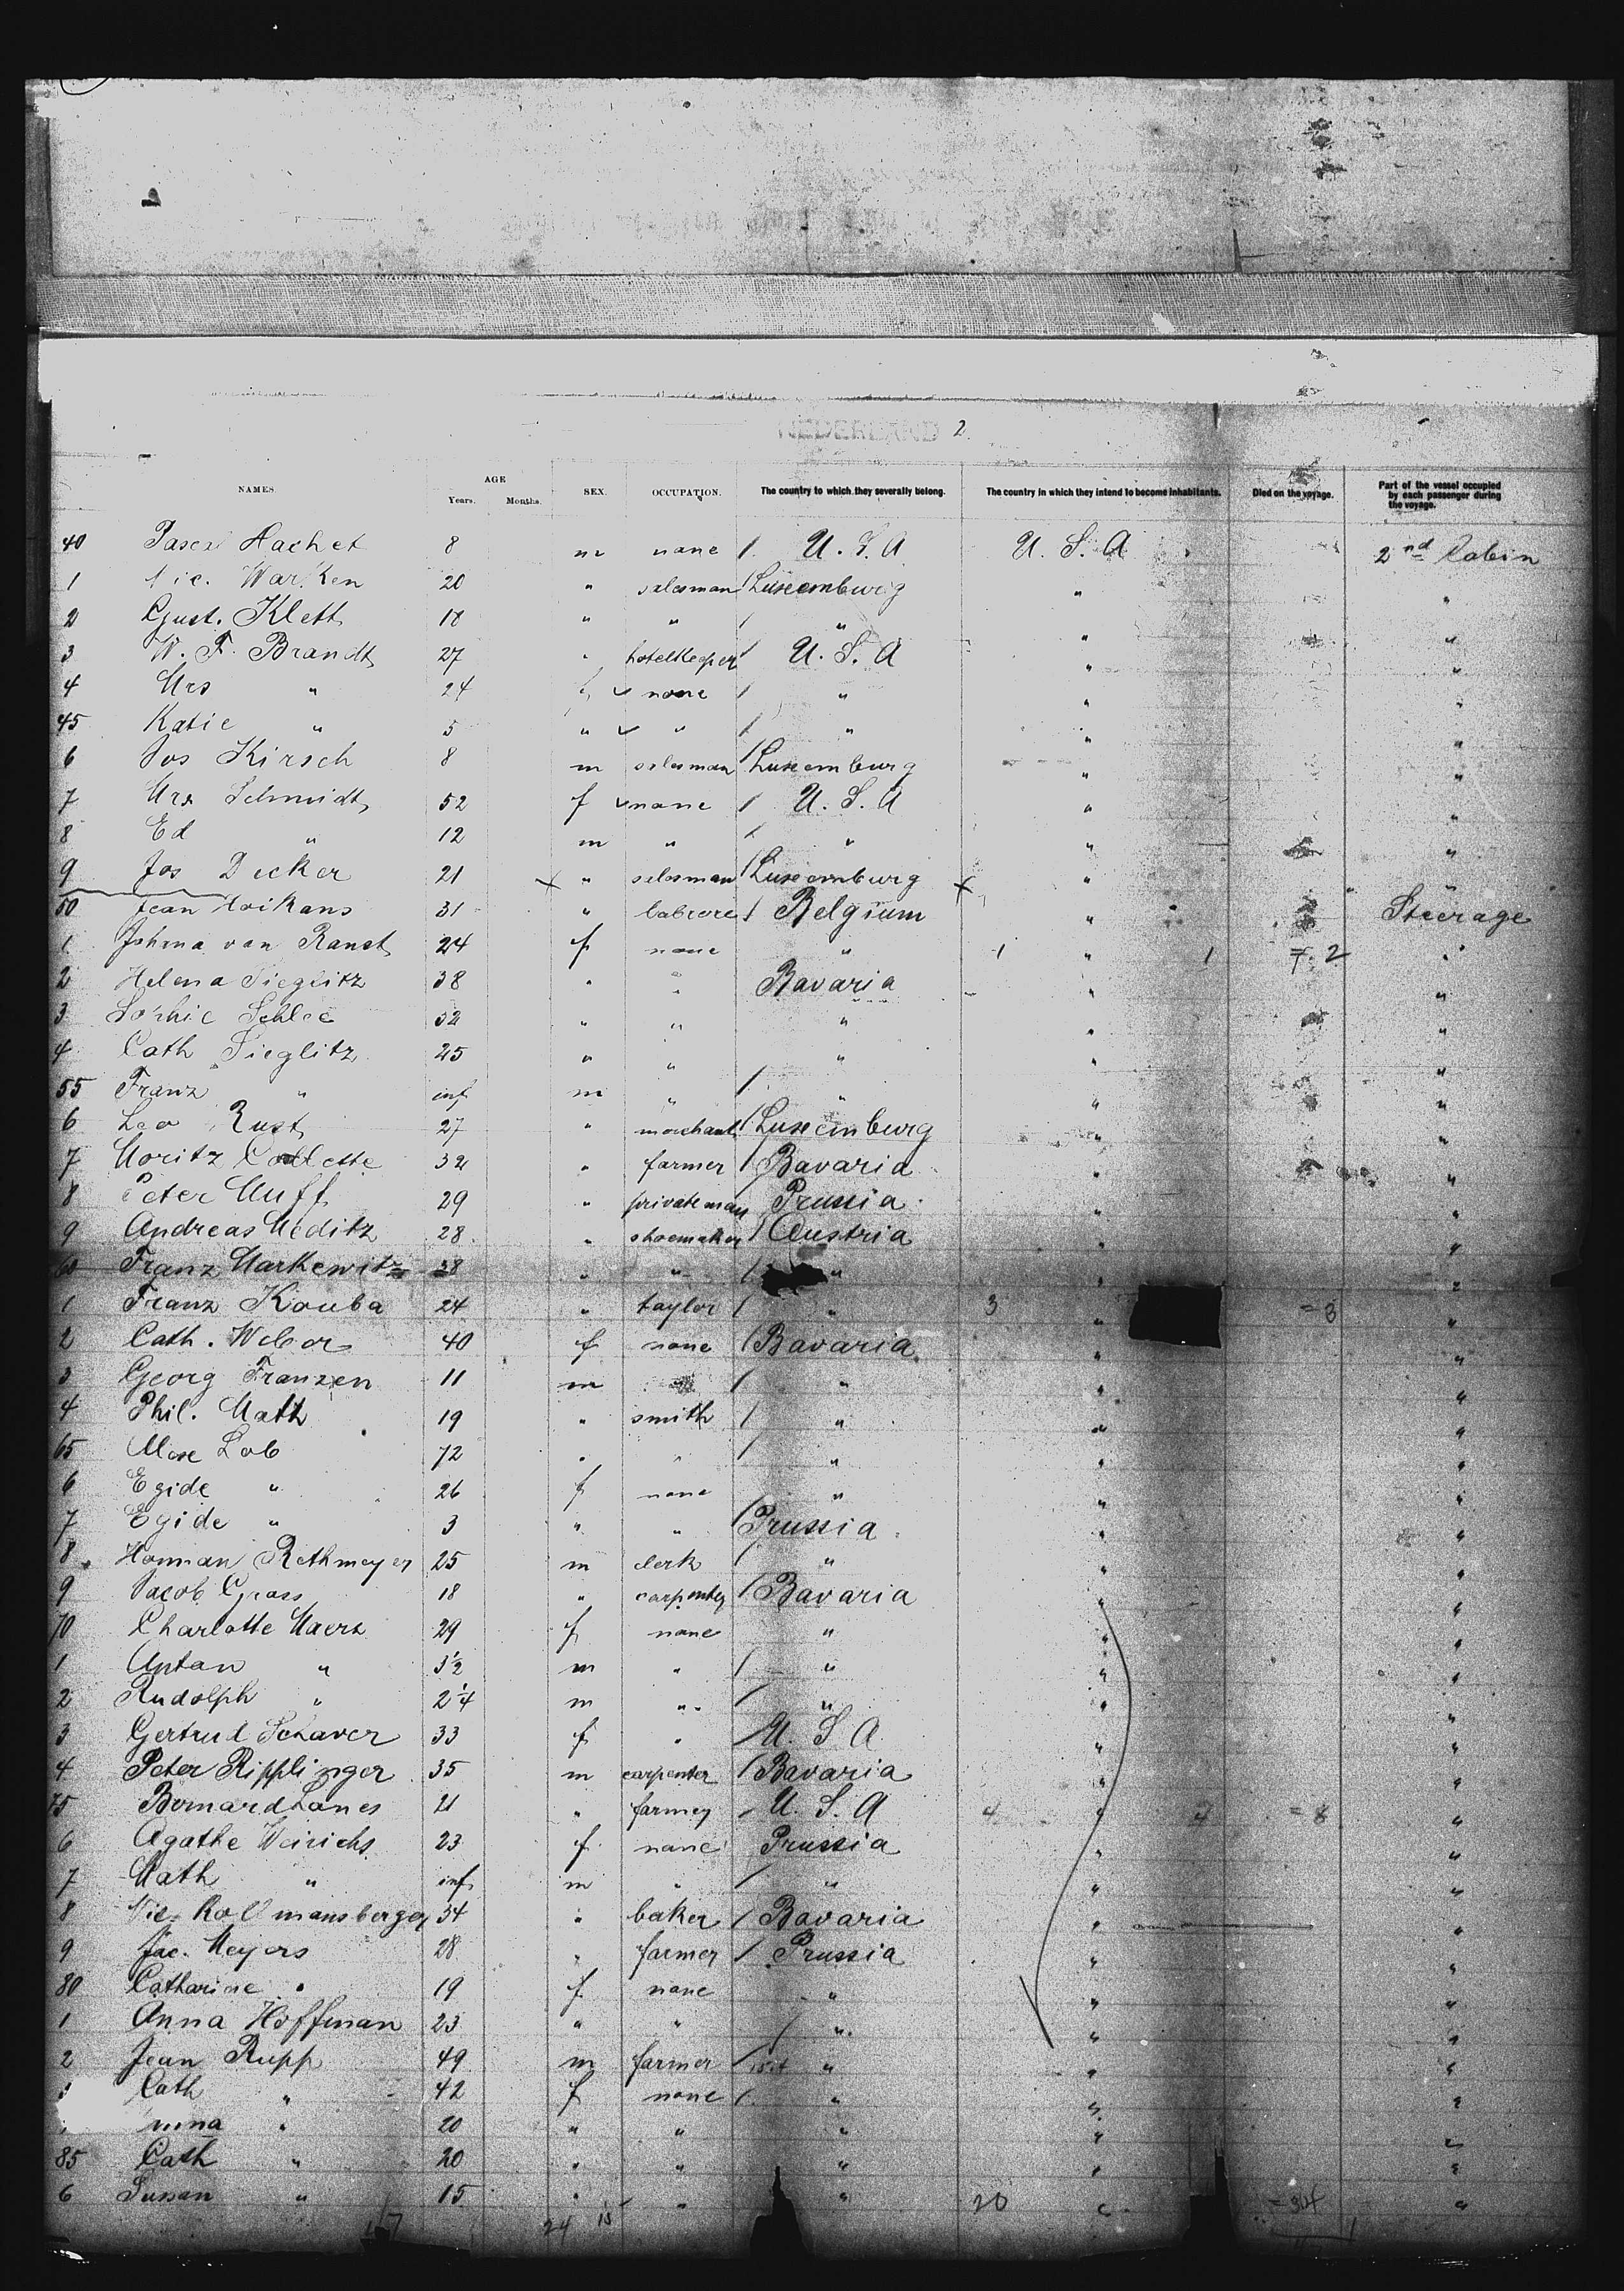 NEDERLAND 2.
NAMES. AGE Years. Months. SEX. OCCUPATION. The country to which they severally belong. The country in which they intend to become inhabitants. Died on the voyage. Part of the vessel occupied by each passenger during the voyage.
40 Hachet 8 m none / U. S. A U. S. A 2nd Cabin
1 20 " salesman / Luxemburg " "
2 Gust. Klett 18 " " / " " "
3 W. F. Brandt 27 " hotelkeeper / U. S. A " "
4 Mrs " 24 f ✓ none / " " "
45 Katie " 5 " ✓ " / " " "
6 Jos Kirsch 8 m salesman / Luxemburg " "
7 Mrs Schmidt 52 f ✓ none / U. S. A " "
8 Ed " 12 m " / " " "
9 Jos Decker 21 x " salesman / Luxemburg x " "
50 Jean 31 " / Belgium " Steerage
1 van Ranst 24 f none " 1 " 1 = 2 "
2 Helena Sieglitz 38 " " Bavaria " "
3 Sophie 52 " " " " "
4 Cath Sieglitz 25 " " " " "
55 Franz " inf m " / " " "
6 Leo Rust 27 " merchant / Luxemburg " "
7 Moritz Collette 32 " farmer / Bavaria " "
8 Peter Muff 29 " privateman Prussia " "
9 Andreas Meditz 28 " shoemaker / Austria " "
60 Franz Markewitz 38 " " / " " "
1 Franz Kouba 24 " taylor / " 3 " = 8 "
2 Cath. Weber 40 f none / Bavaria " "
3 Georg Franzen 11 m / " " "
4 Phil. Math 19 " smith / " " "
65 Lob 72 " " / " " "
6 Egide " 26 f none " " "
7 Egide " 3 " " / Prussia " "
8 Herman Rethmeyer 25 m clerk / " " "
9 Jacob Grass 18 " carpenter / Bavaria " "
70 Charlotte Maerz 29 f none " " "
1 Anton " 3½ m " / " " "
2 Rudolph " 2¼ m " / " " "
3 Gertrud 33 f " / U. S. A " "
4 Peter Ripplinger 35 m carpenter / Bavaria " "
75 Bernard Lanes 21 " farmer / U. S. A 4 " 4 = 8 "
6 Agathe Weirichs 23 f none Prussia " "
7 Math " inf m " / " " "
8 Kollmansberger 34 " baker / Bavaria " "
9 Jac. Meyers 28 " farmer / Prussia " "
80 Catharine " 19 f none " " "
1 Anna Hoffman 23 " " / " " "
2 Jean Rupp 49 m farmer / " " "
3 Cath " 42 f none / " " "
" 20 " " " " "
85 Cath " 20 " " " " "
6 Susan " 15 " " " 20 " = 34 "
47 24 15